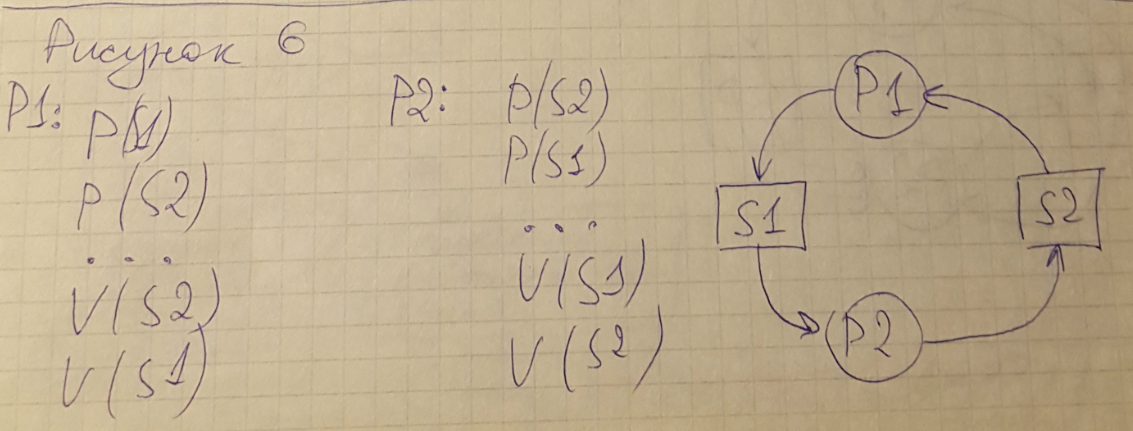 Рисунок 6
P1:
P(S1)
P(S2)
...
V(S2)
V(S1)
P2:
P(S2)
P(S1)
...
V(S1)
V(S2)
P1
S1
S2
P2